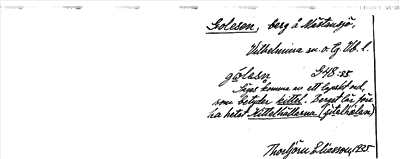 Golesen, berg å Mårtensjö,
Vilhelmina sn. o. Lg. Vb. l.
gólesen 948:25
Säges komma av ett lapskt ord,
som betyder kittel. Berget lär före
ha hetat Kittelhällarna
Thorbjörn Eliasson, 1925